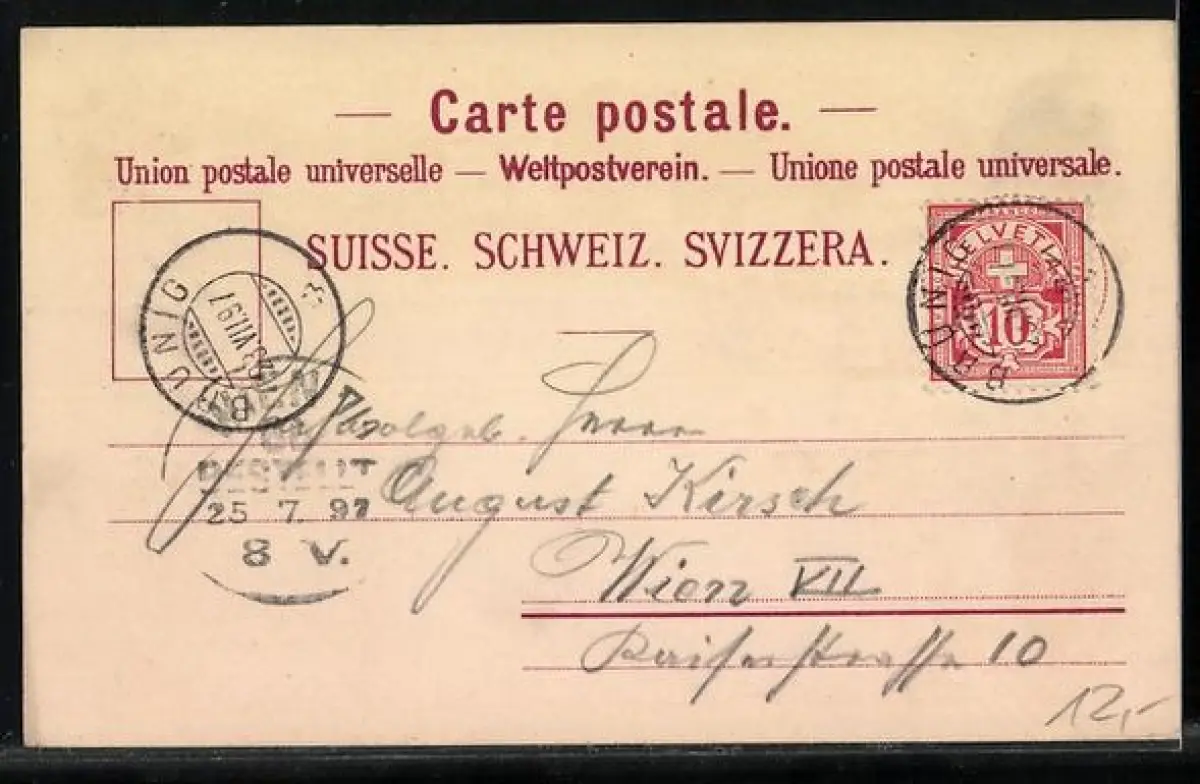 — Carte postale. —
Union postale universelle — Weltpostverein. — Unione postale universale.
SUISSE. SCHWEIZ. SVIZZERA.
BRUNIG
23 VII 97
HELVETIA
10
BRUNIG
Herrn
BESTELLT
25 7 97
8 V.
August Kirsch
Wien VII
Kaiserstrasse 10
12,-